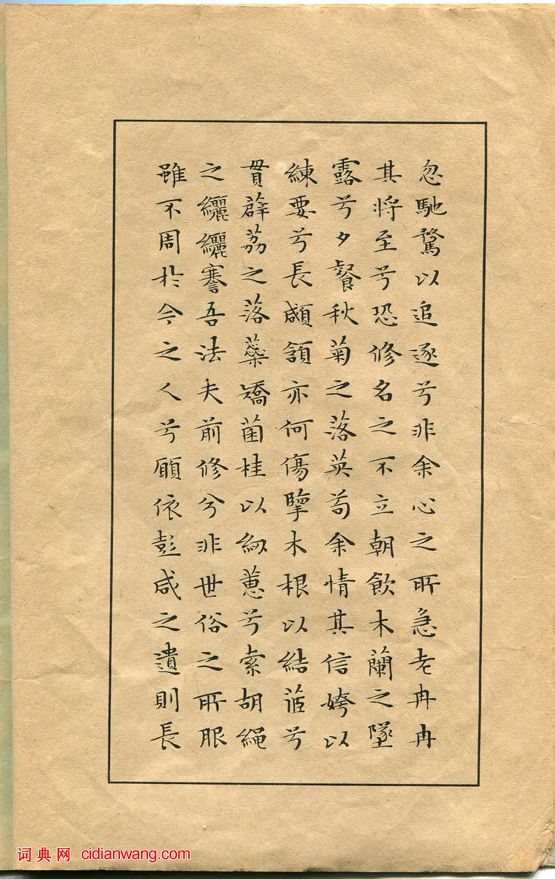 忽馳騖以追逐兮非余心之所急老冉冉
其將至兮恐修名之不立朝飲木蘭之墜
露兮夕餐秋菊之落英苟余情其信姱以
練要兮長顑頷亦何傷擥木根以結茝兮
貫薜荔之落蘂矯菌桂以紉蕙兮索胡繩
之纚纚謇吾法夫前修兮非世俗之所服
雖不周於今之人兮願依彭咸之遺則長
词典网 cidianwang.com